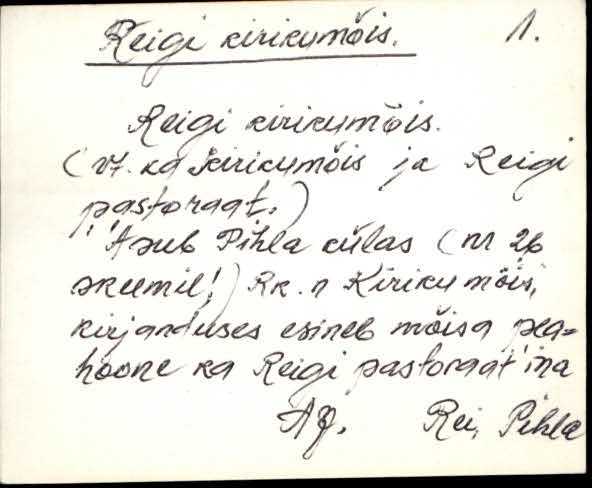 Reigi kirikumõis. 1.
Reigi kirikumõis.
(vt. ka Kirikumõis ja Reigi
pastoraat.)
Asub Pihla külas (nr 26
skeemil!) Rk. n Kirikumõis,
kirjanduses esineb mõisa pea-
hoone ka Reigi pastoraat'ina
Rei, Pihla